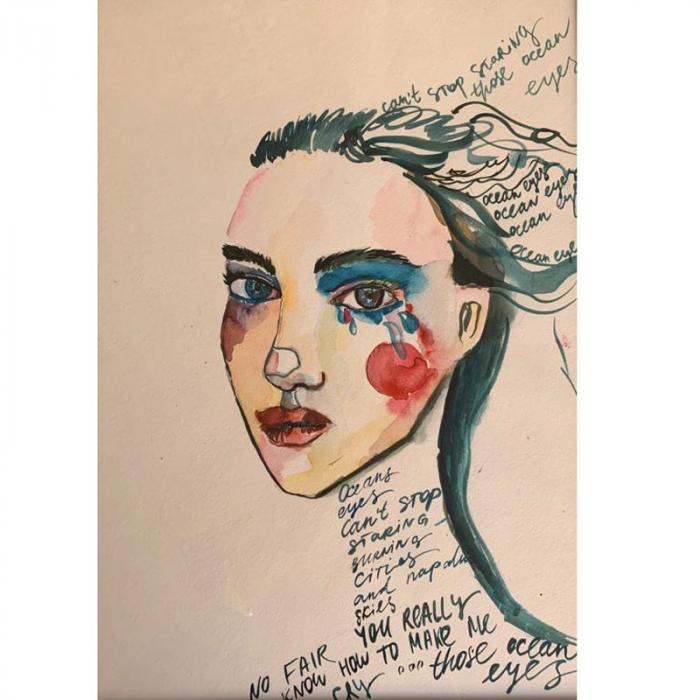 can't STOP STARING
those ocean
eyes
ocean eyes
ocean eyes
ocean eye
ocean eye
Oceans
eyes
Can't STOP
STARING
BURNING
CITIES
and napalm
skies
NO FAIR YOU REALLY
KNOW HOW TO MAKE ME
CRY ... those ocean
eyes